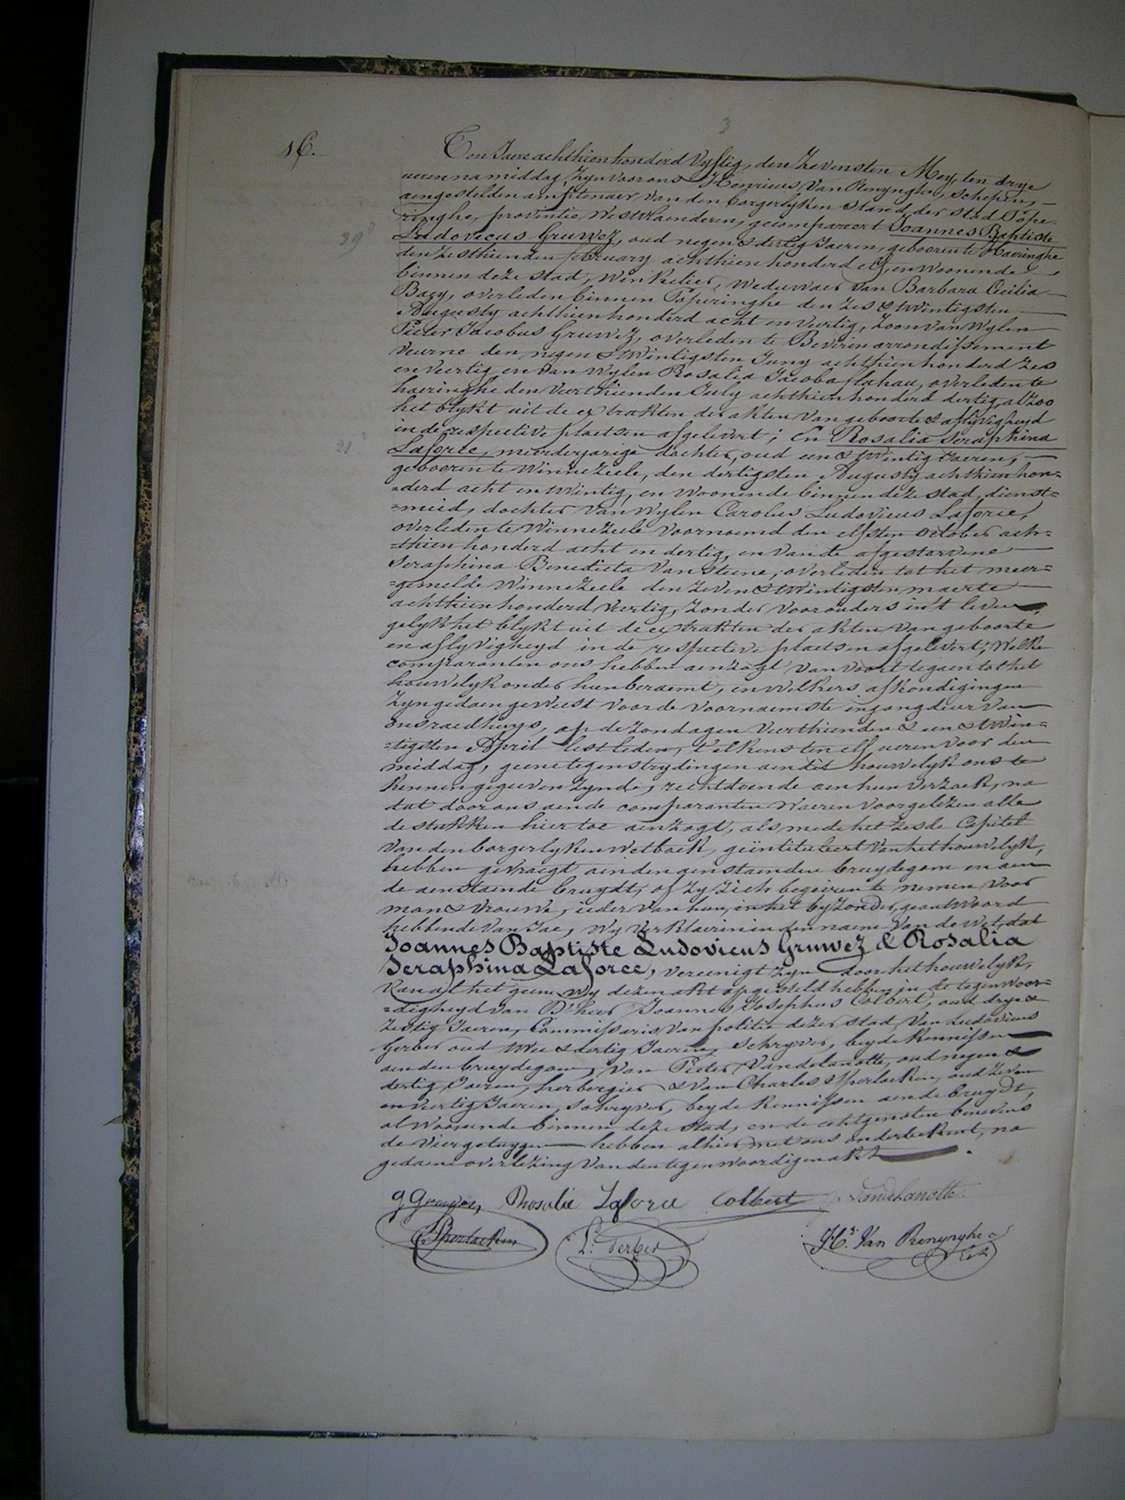 3
16.
Ten Jaere achthien honderd vyftig, den Zevensten Mey, ten drye
ueren namiddag, Zyn voor ons Henricus Van Renynghe, Schepen,
aengestelden amptenaer van den borgerlyken Stand der Stad Pope-
ringhe, provintie Westvlaenderen, gecompareert Joannes Baptiste
39
Ludovicus Gruwez, oud negen & dertig Jaeren, gebooren te Haeringhe
den Zesthienden february achthien honderd elf, en Woonende
binnen deze stad, Winkelier, Weduwaer van Barbara Cicilia
Bazy, overleden binnen Poperinghe den Zes & twintigsten
Augusty achthien honderd acht en veertig, Zoon van Wylen
Pieter Jacobus Gruwez, overleden te Beveren arrondissement
Veurne den negen & twintigsten Juny achthien honderd Zes
en veertig, en van Wylen Rosalia Jacoba flahau, overleden te
haeringhe den veerthienden July achthien honderd dertig, al Zoo
het blykt uit de extrakten der akten van geboorte & aflyvigheyd
in de respective plaetsen afgelevert; En Rosalia Seraphina
21
Laforce, minderjarige dochter, oud een & twintig Jaeren,
gebooren te Winnezeele, den dertigsten Augusty achthien hon-
derd acht en twintig, en Woonende binnen deze stad, dienst-
meid, dochter van Wylen Carolus Ludovicus Laforce,
overleden te Winnezeele voornoemd den elfsten October ach-
thien honderd acht en dertig, en van de afgestorvene
Seraphina Benedicta Van Steene, overleden tot het meer-
gemelde Winnezeele den Zeven & twintigsten maerte
achthien honderd veertig, Zonder voorouders in 't leven
gelyk het blykt uit de extrakten der akten van geboorte
en aflyvigheyd in de respective plaetsen afgelevert; Welke
comparanten ons hebben aenzogt van voort te gaen tot het
houwelyk onder hun beraemt, en Welkers afkondigingen
Zyn gedaen geweest voor de voornaemste ingangdeur van
ons raedhuys, op de Zondagen veerthienden & een & twin-
tigsten April lest leden, t'elkens ten elf ueren voor den
middag, geene tegenstrydingen aen dit houwelyk ons te
kennen gegeven Zynde, rechtdoende aen hun verzoek, na
dat door ons aen de comparanten Waeren voorgelezen alle
de stukken hier toe aenzogt, als mede het Zesde Capitel
van den borgerlyken Wetboek, geïntituleert van het houwelyk,
hebben gevraegt, aen den aenstaenden bruydegom en aen
de aenstaende bruydt, of Zy Zich begeeren te nemen voor
man & Vrouwe, ieder van hun, in het byzonder, geantWoord
hebbende van Jae, Wy verklaeren in den naem van de Wet, dat
Joannes Baptiste Ludovicus Gruwez & Rosalia
Seraphina Laforce, vereenigt Zyn door het houwelyk,
Van al het geene Wy dezen akt opgesteld hebben in de tegenwoor-
digheyd van D'heer Joannes Josephus Colbert, oud drye &
Zestig Jaeren, Commissaris van politie dezer stad, Van Ludovicus
Gerber oud twee & dertig Jaeren, Schryver, beyde kennissen
aen den bruydegom, Van Pieter Vandelanotte, oud negen &
dertig Jaeren, herbergier & Van Charles Sperlaeken, oud Zeven
en veertig Jaeren, Schryver, beyde kennissen aen de bruydt,
al Woonende binnen deze stad, en de echtgenoten benevens
de vier getuygen hebben alhier met ons onderteekent, na
gedaene overlezing van den tegenwoordigen akt.
Rosalie Laforce Colbert Vandelanotte
L. Gerber Hs. Van Renynghe